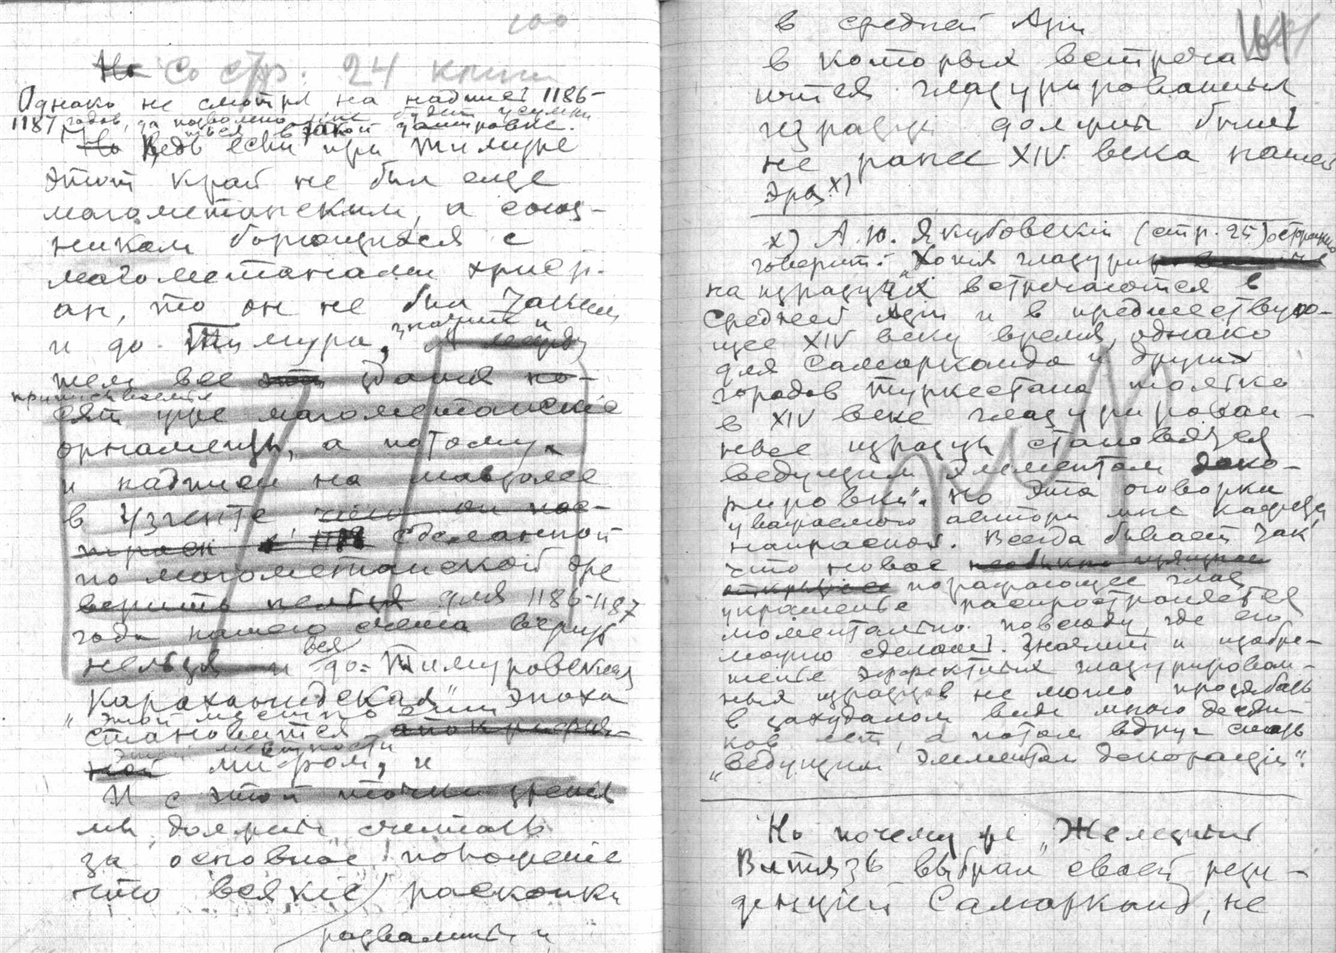 100
Но Со стр. 24 книги
Однако не смотря на надписи 1186-
1187 годов, да позволено мне будет усумни
ться в такой датировке.
Но Ведь если при Тимуре
этот край не был еще
магометанским, а союз-
ником борющихся с
магометанами христи-
ан, то он не был таким
и до Тимура, значит и
А между
тем все эти здания но-
приписывается
сят уже магометанские
орнаменты, а потому
и надписи на мавзолее
в Узгенте
1186 сделанной
по магометанской эре
верить нельзя для 1186-1187
года нашего счета верить
нельзя и вся до-Тимуровская
"Караханидская" эпоха
этой местности
становится апокрифич-
ной мифом, и
И с этой точки зрения
мы должны считать
за основное положение
что всякие раскопки
развалины и
101
в средней Азии
в которых встреча-
ются глазурированные
изразцы должны быть
не ранее XIV века нашей
эры x)
x) А.Ю. Якубовский (стр. 25) осторожно
говорит: "Хотя глазури
на изразцах встречаются в
Средней Азии и в предшествую-
щее XIV веку время, однако
для Самарканда и других
городов Туркестана только
в XIV веке глазурирован-
ные изразцы становятся
ведущим элементом деко-
рировки". Но эта оговорка
уважаемого автора мне кажется
напрасной. Всегда бывает так
что новое необычно изящное
открытие поражающее глаз
украшенье распространяется
моментально повсюду где его
можно сделать. Значит и изобре-
тенье эффектных глазурирован-
ных изразцов не могло прозябать
в захудалом виде много десят-
ков лет, а потом вдруг стать
"ведущим элементом декорации".
Но почему же "Железный
Витязь выбрал своей рези-
денцией Самарканд, не